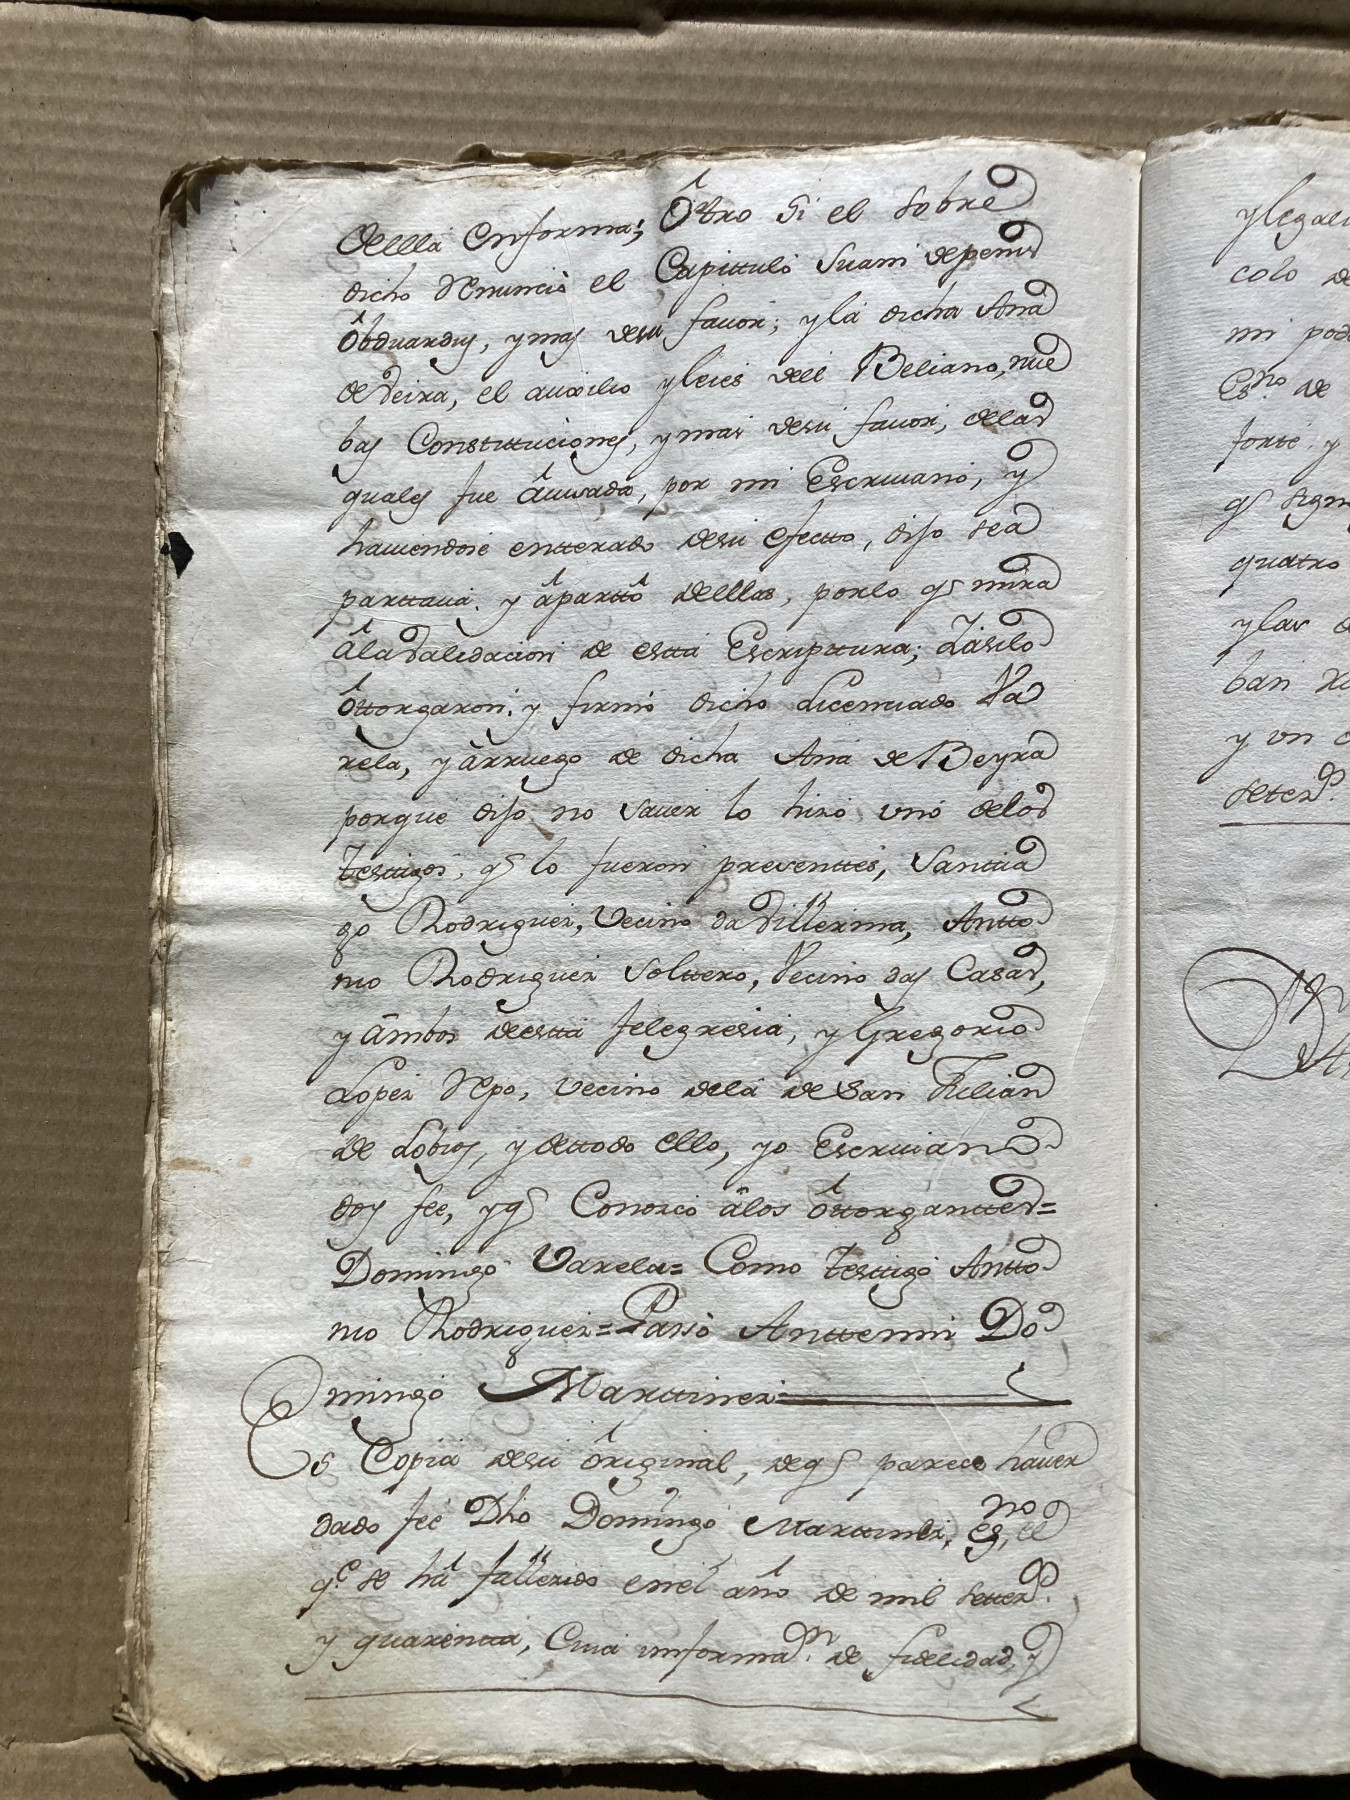 dellla enforma; Ôtro Si el sobre
dicho Renuncio el Capittulo Suam depenis
ôbduardus, y mas desu fauor; y la dicha Ana
de Veira, el auxilio y leies dell Beliano, nue
bas Constituciones, y mas desu fauor, delas
quales fue âuisada, por mi Escriuano, y
hauiendose entterado desu efectto, dijo sea
parttaua. y âparttô dellas, porlo q̃ mira
âla Validacion de estta Escripttura; Y âsilo
ôttorgaron. y firmò dicho Licenciado Va
rela, y ârruego de dicha Ana de Beyra
porque dijo no sauer lo hizo uno delos
testtigos, q̃ lo fueron presenttes, Santtia
go Rodriguez, Vecino da Villerma, Antto
nio Rodriguez Solttero, Vecino das Casas,
y âmbos deestta felegresia, y Gregorio
Lopez Repo, vecino dela de San Julian
de Lobios, y dettodo ello, yo Escriuano
doy fee, y q̃ Conozco âlos ôttorganttes=
Domingo Varela= Como testtigo Antto
nio Rodriguez= Passò Anttemi Do
mingo Marttinez
Es Copia desu ôriginal, deq̃ parece hauer
dado feé Dho Domingo Marttinez, es.no el
q.e se hâ fallezido enel año de mil settez.s
y quarentta, Cuia informaz.n de fidelidad, y
ylegal
colo de
mi pod
Es.no de
forte. y
q̃ sign
quatro
ylas d
ban
y un
setez.s